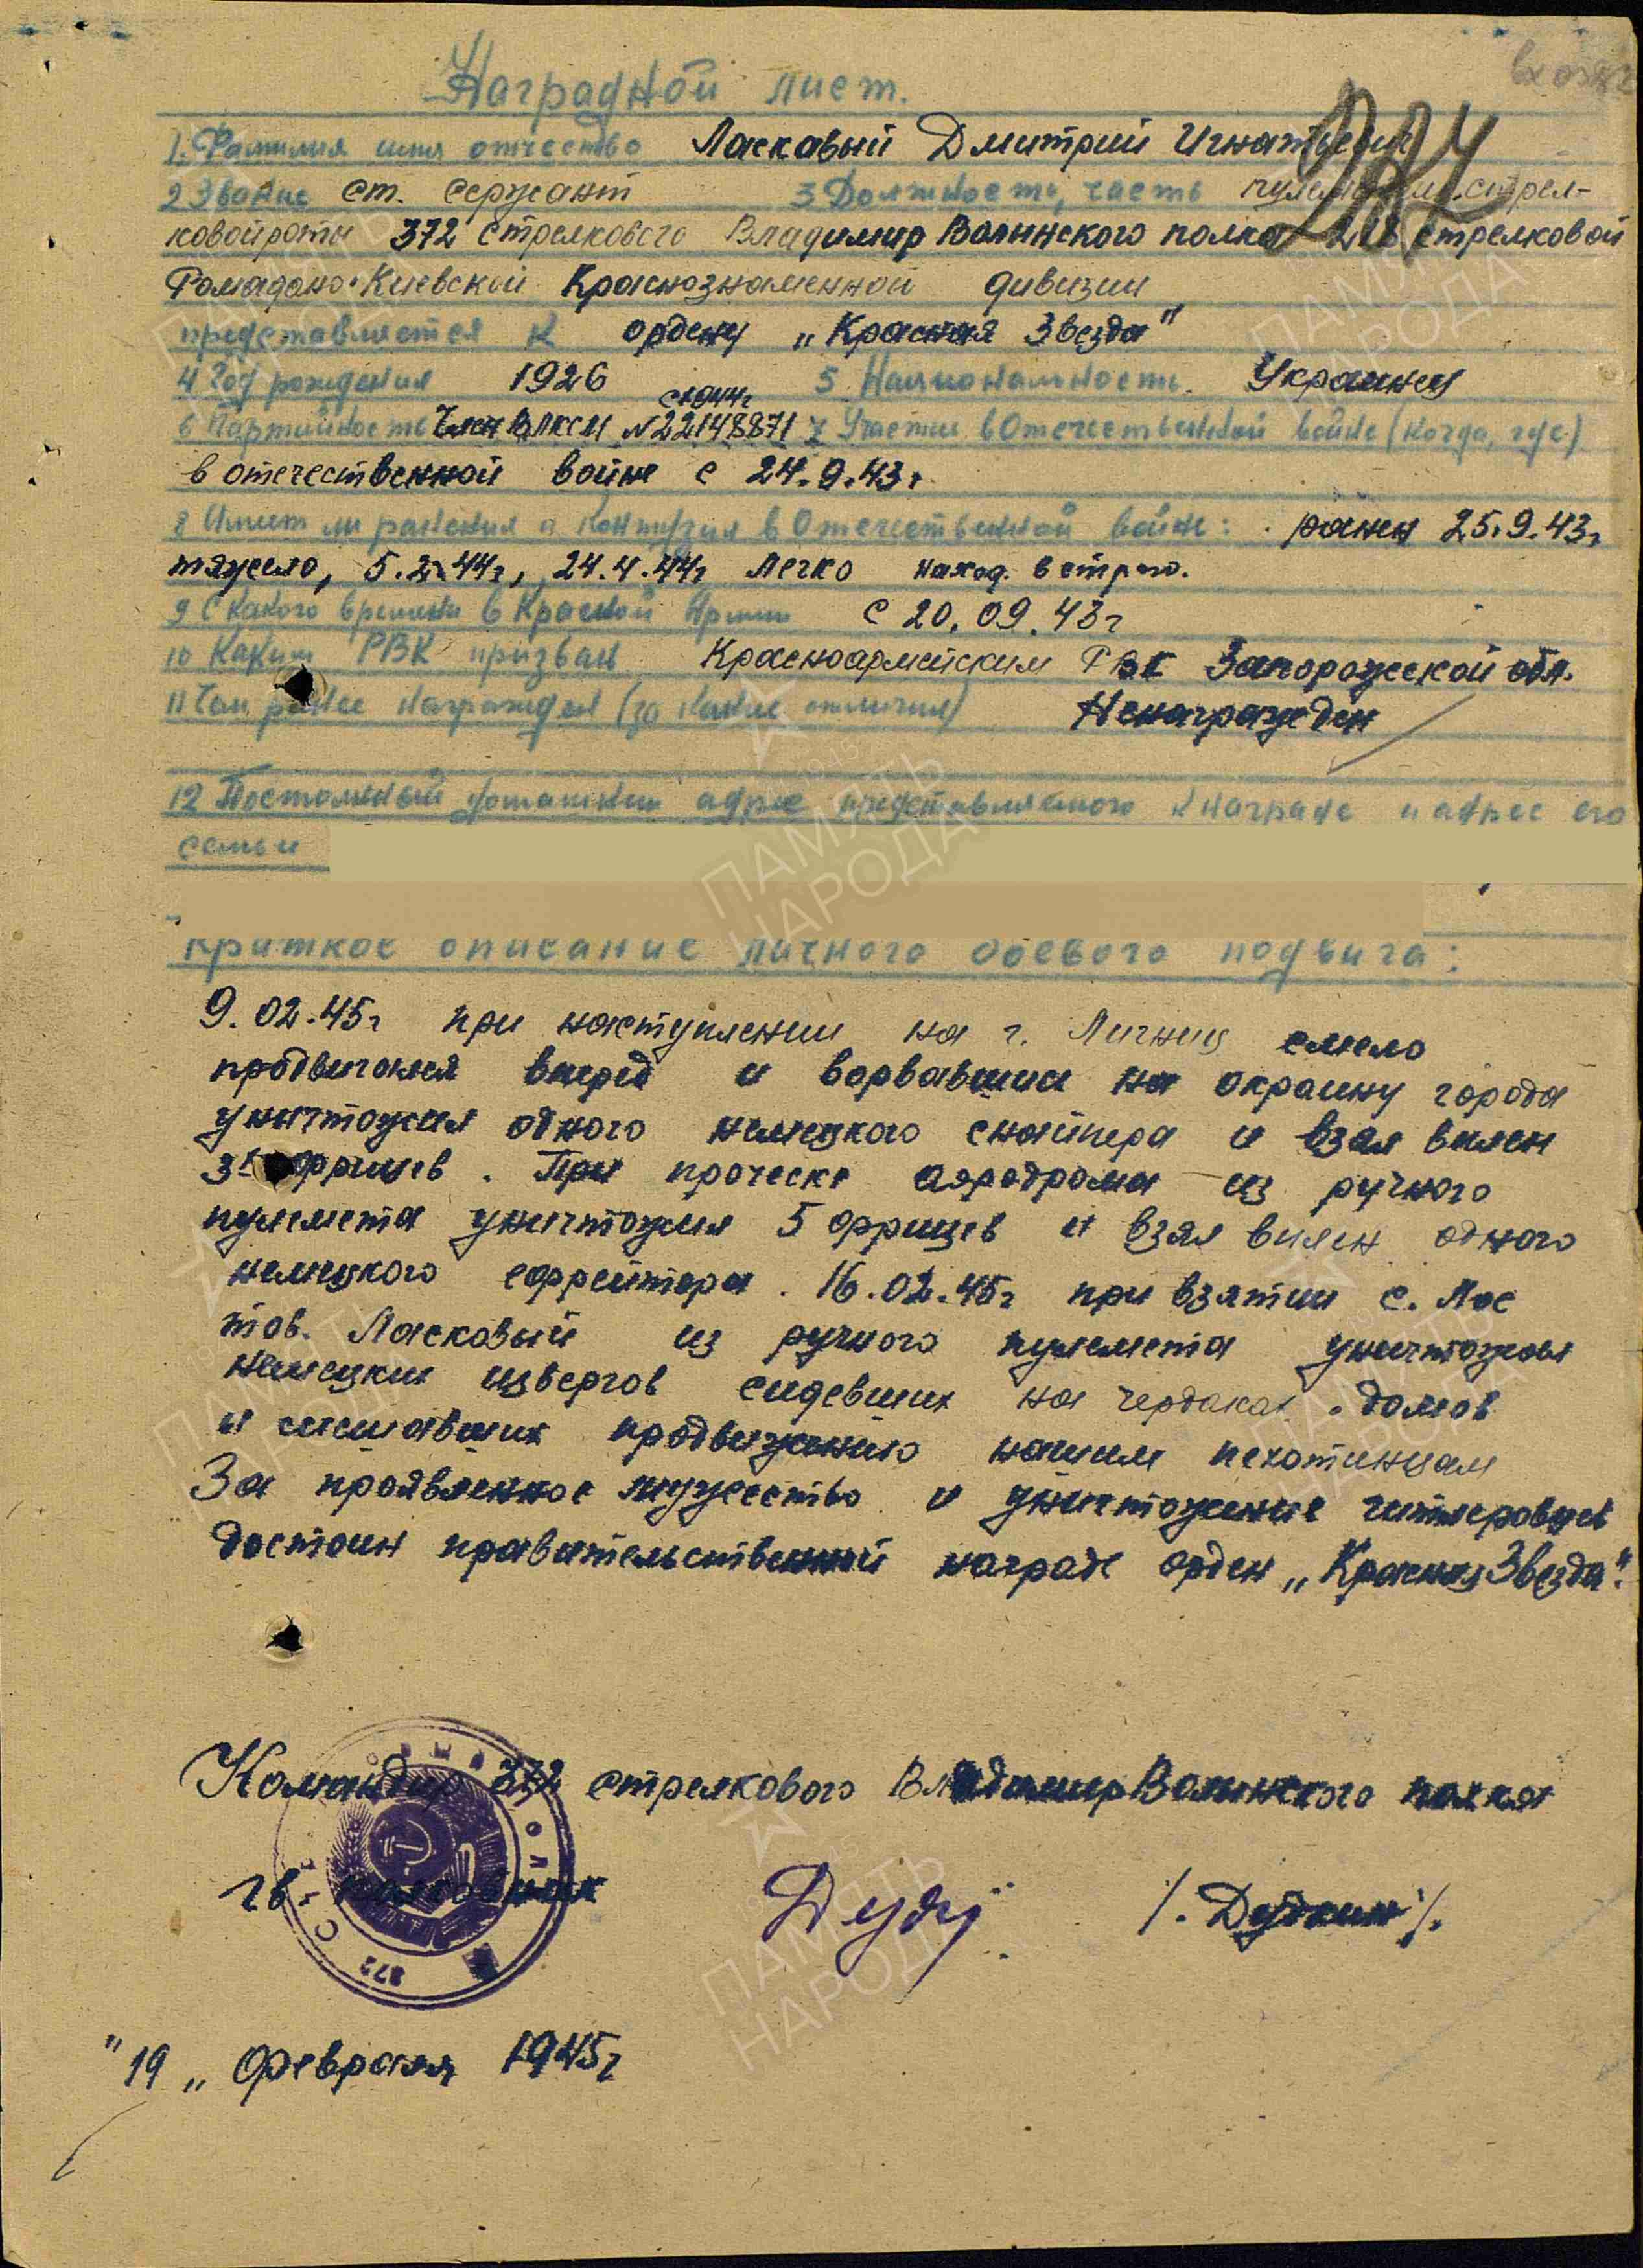 Наградной лист.
1. Фамилия имя отчество Ласкавый Дмитрий Игнатьевич
2 Звание ст. сержант 3 Должность, часть стрел-
ковой роты 372 стрелкового Владимир Волынского полка 218 стрелковой
Ромадано-Киевской Краснознаменной дивизии
представляется к ордену „Красная Звезда"
4 Год рождения 1926 5 Национальность Украинец
с 1944г
6 Партийность Член ВЛКСМ №22148871 7 Участие в Отечественной войне (когда, где)
в отечественной войне с 24.9.43г
8 Имеет ли ранения и контузия в Отечественной войне: ранен 25.9.43г
тяжело, 5.2.44г, 24.4.44г легко наход. в строю.
9 С какого времени в Красной Армии с 20.09.43г
10 Каким РВК призван Красноармейским РВК Запорожской обл.
11 Чем ранее награжден (за какие отличия) Ненагражден
12 Постоянный домашний адрес представляемого к награде и адрес его
семьи
Краткое описание личного боевого подвига:
9.02.45г при наступлении на г. Лигниц смело
продвигался вперед и ворвавшись на окраину города
уничтожил одного немецкого снайпера и взял вплен
3х фрицев. При проческе аэродрома из ручного
пулемета уничтожил 5 фрицев и взял вплен одного
немецкого ефрейтора. 16.02.45г при взятии с. Лос
тов. Ласковый из ручного пулемета уничтожал
немецких извергов сидевших на чердаках домов
и мешавших продвижению нашим пехотинцам
За проявленное мужество и уничтожение гитлеровцев
достоин правительственной награде орден „Красная Звезда".
Командир 372 стрелкового Владимир Волынского полка
гв. полковник /. Дудкин /.
372
"19„ февраля 1945г
ПАМЯТЬ
НАРОДА